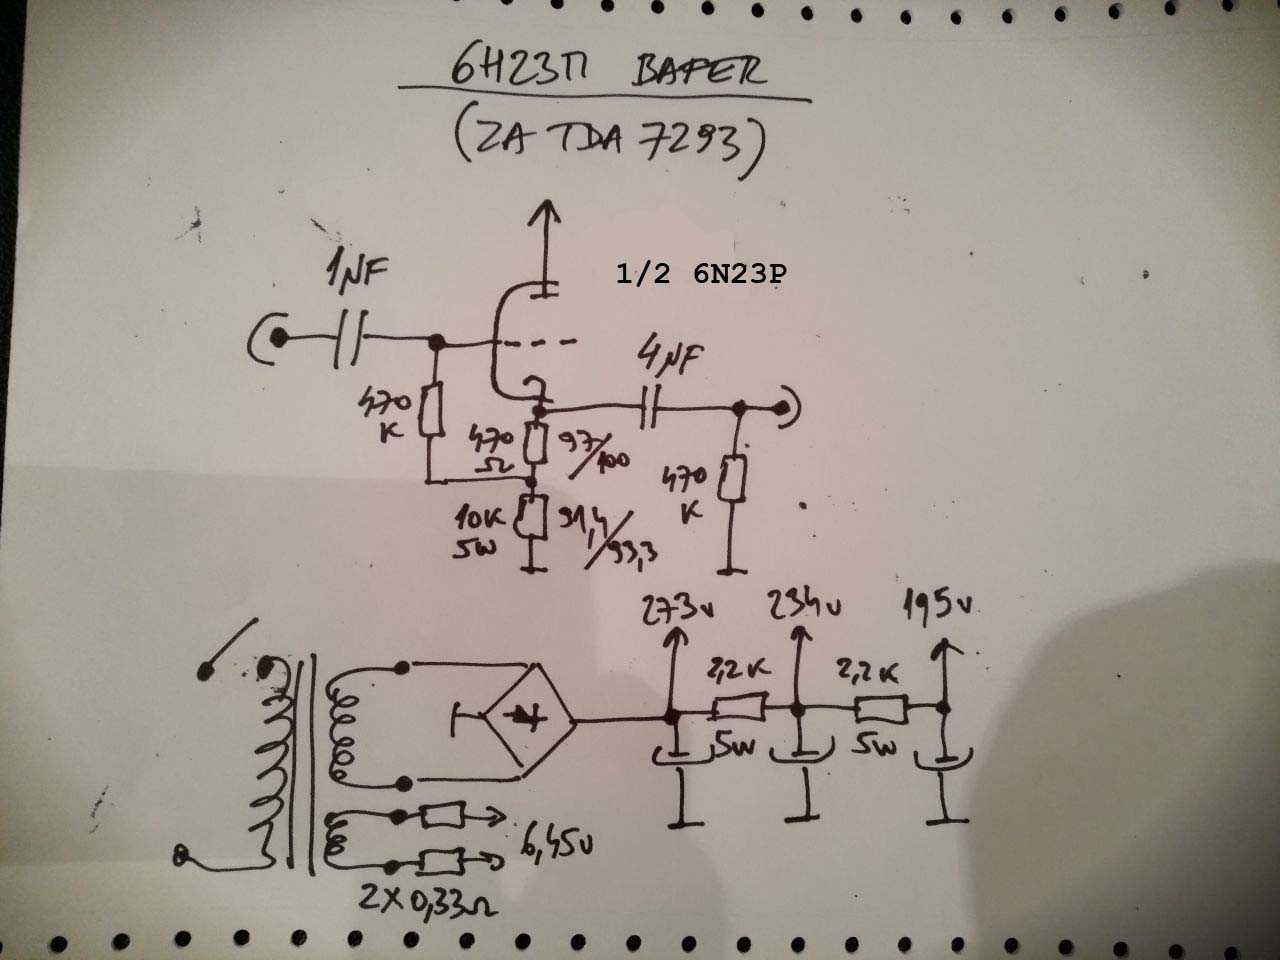 6Н23П BAFER
(ZA TDA 7293)
1µF
1/2 6N23P
4µF
470
K
470
Ω
97/100
470
K
10K
5W
91,4/93,3
273V
234V
195V
2,2K
2,2K
5W
5W
6,45V
2X0,33Ω